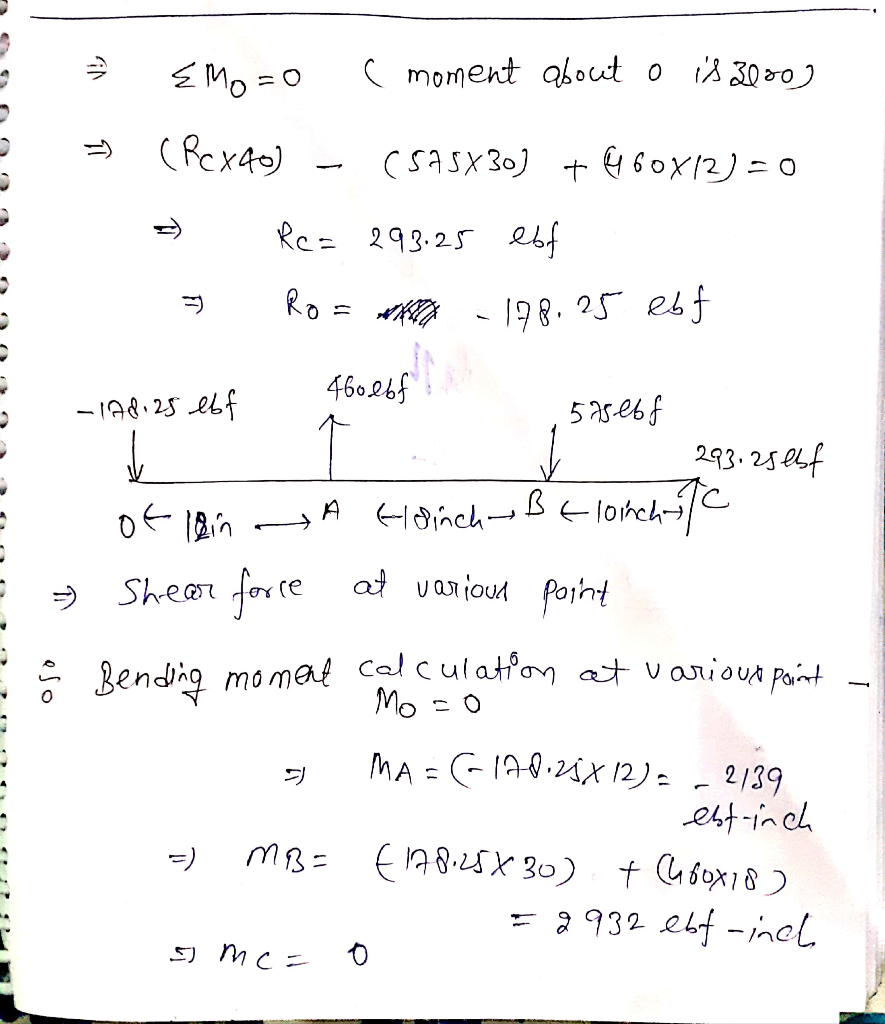 ⇒ ΣMo = 0 ( moment about o is zero)
⇒ (Rc×40) - (575×30) + (460×12) = 0
⇒ Rc = 293.25 lbf
⇒ Ro = -178.25 lbf
-178.25 lbf 460lbf 575lbf 293.25lbf
O ← 12in → A ←18inch→ B ←10inch→ C
⇒ Shear force at various point
Bending moment calculation at various point -
Mo = 0
⇒ MA = (-178.25×12) = - 2139
lbf-inch
⇒ MB = (-178.25×30) + (460×18)
= 2932 lbf-inch
⇒ Mc = 0